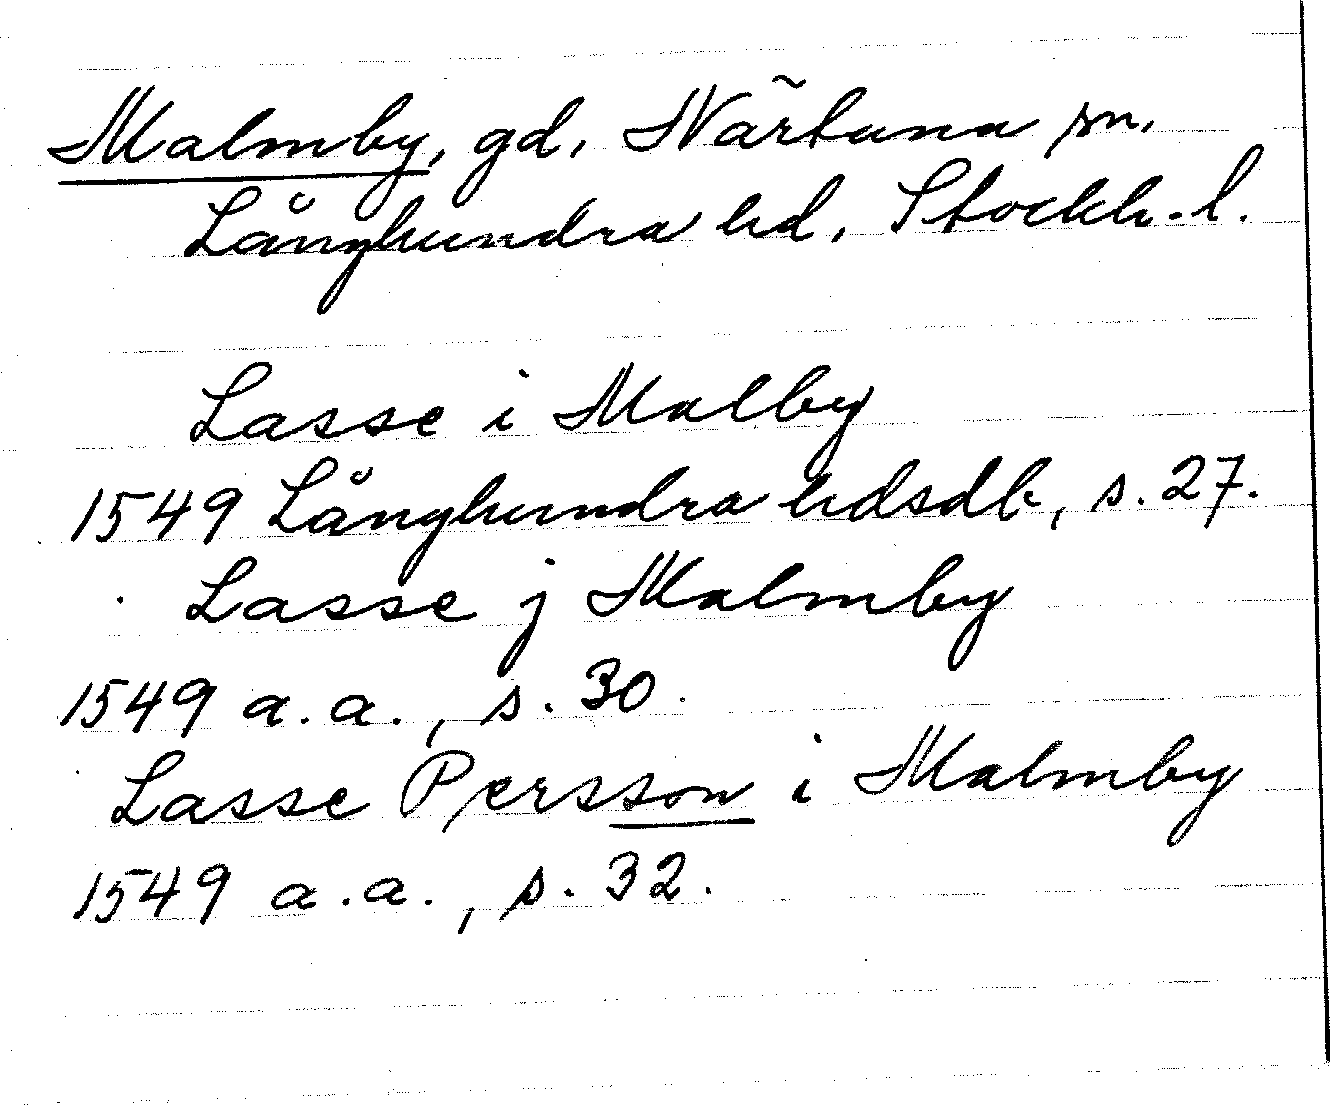 Malmby, gd, Närtuna sn.
Långhundra hd, Stockh. l.
Lasse i Malby
1549 Långhundra hdsdb, s. 27.
Lasse j Malmby
1549 a.a., s. 30.
Lasse Persson i Malmby
1549 a.a., s. 32.